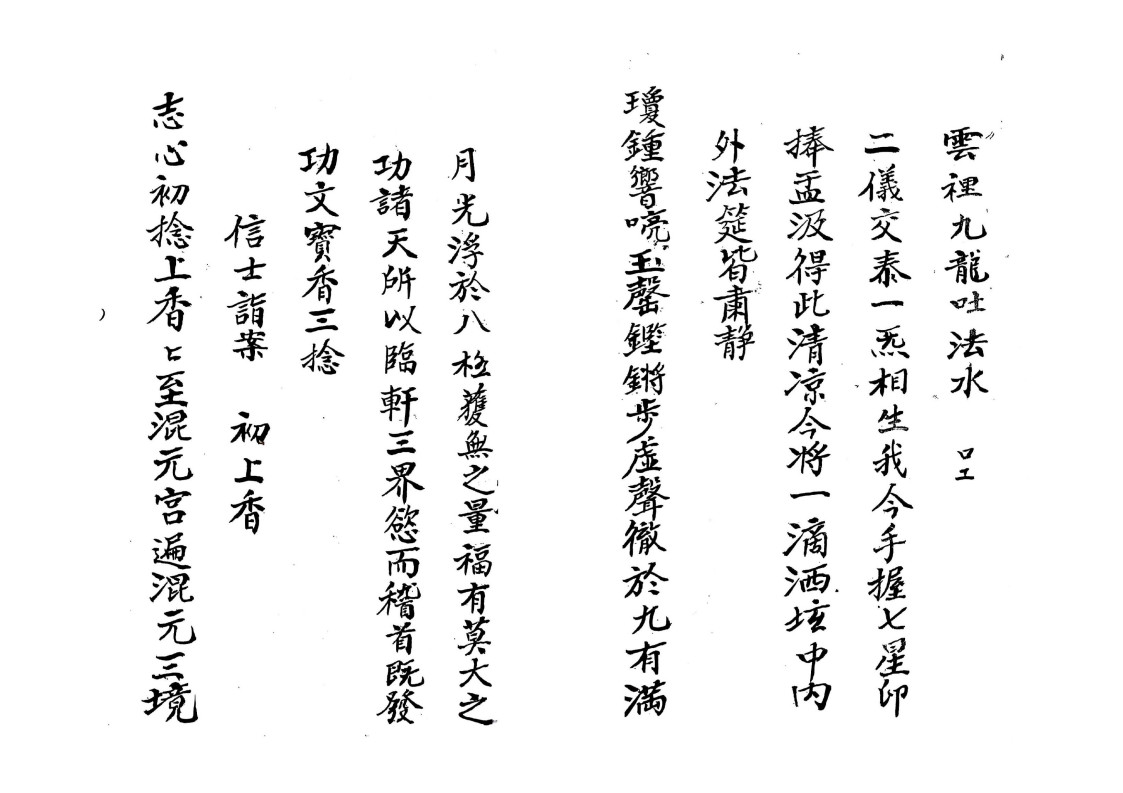 雲裡九龍吐法水
二儀交泰一炁相生我今手握七星印
捧盂汲得此清凉今将一滴洒坛中内
外法筵皆肅静
瓊鍾響喨玉罄鏗鏘步虛聲徹於九有滿
月光浮於八極獲無之量福有莫大之
功諸天所以臨軒三界慾而稽首既發
功文寳香三捻
信士詣案 初上香
志心初捻上香〻至混元宫遍混元三境